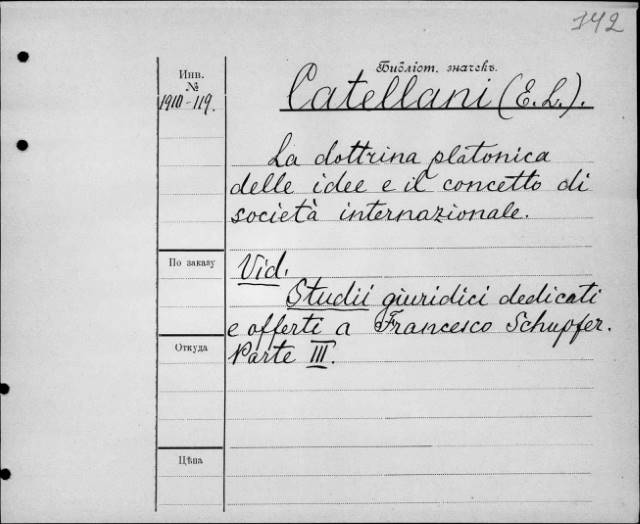 142
Библіот. значекъ.
Инв.
№
1910-119.
Catellani (E. L.).
La dottrina platonica
delle idee e il concetto di
società internazionale.
По заказу
Vid.
Studii giuridici dedicati
e offerti a Francesco Schupfer.
Parte III.
Откуда
Цѣна